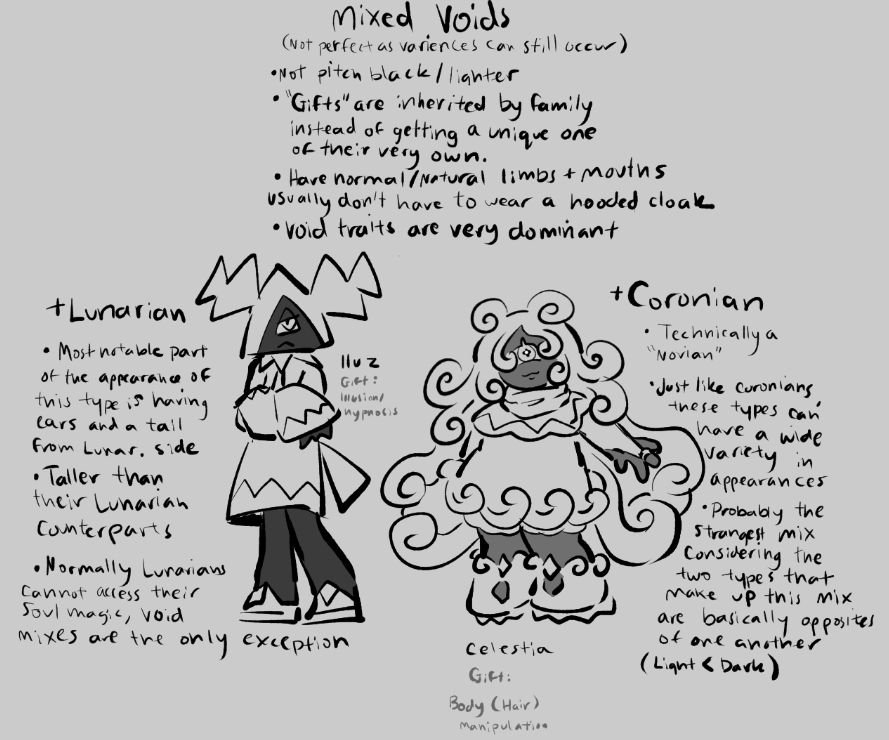 Mixed Voids
(Not perfect as variences can still occur)
•Not pitch black/lighter
•"Gifts" are inherited by family
instead of getting a unique one
of their very own.
•Have normal/Natural limbs + mouths
usually don't have to wear a hooded cloak
•Void traits are very dominant
+Lunarian
•Most notable part
of the appearance of
this type is having
ears and a tail
from Lunar. side
•Taller than
their Lunarian
Counterparts
•Normally Lunarians
Cannot access their
Soul magic, void
mixes are the only exception
Iluz
Gift:
Illusion/
hypnosis
+Coronian
•Technically a
"Novian"
•Just like coronians
these types can
have a wide
variety in
appearances
•Probably the
strangest mix
Considering the
two types that
make up this mix
are basically opposites
of one another
(Light & Dark)
Celestia
Gift:
Body (Hair)
manipulation